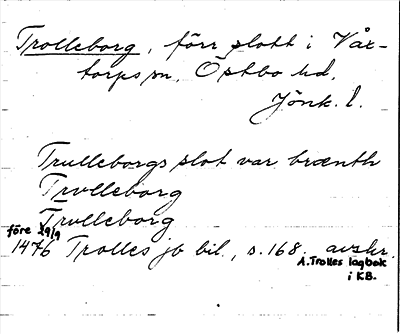 Trolleborg, förr slott i Våx-
torps sn, Östbo hd,
Jönk. l.
Trulleborgs slot var brænth
Trolleborg
Trulleborg
före 29/9
1476 Trolles jb bil., s. 168. avskr.
A. Trolles lagbok
i KB.